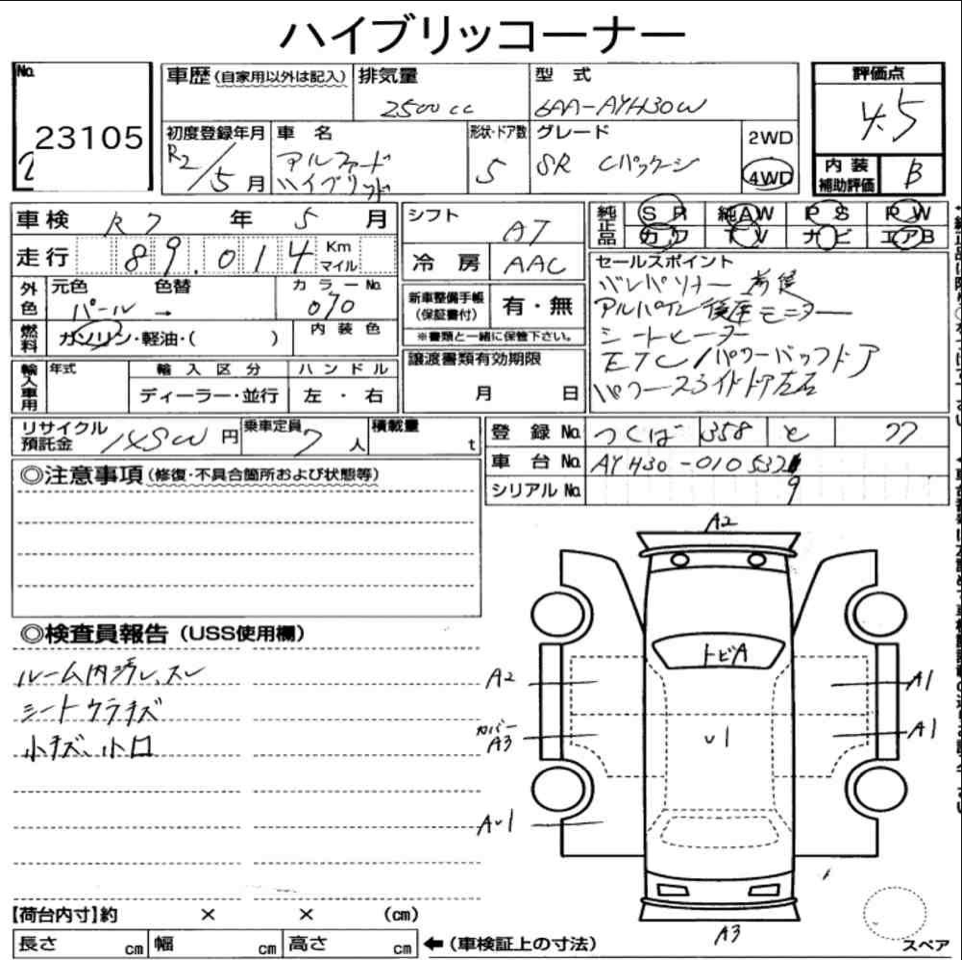 ハイブリッコーナー
No.
23105
車歴(自家用以外は記入)
排気量
2500cc
型 式
6AA-AYH30W
評価点
4.5
初度登録年月
R2/5月
車 名
アルファード
ハイブリッド
形状・ドア数
5
グレード
SR Cパッケージ
2WD
4WD
内装
補助評価
B
車検 R7 年 5 月
走行 89.014 Km
マイル
シフト
AT
冷房 AAC
純正品
SR 純AW PS PW
カワ TV ナビ エアB
外色
元色 色替
パール →
カラーNo.
070
燃料
ガソリン・軽油・( )
内装色
新車整備手帳
(保証書付)
有・無
※書類と一緒に保管下さい。
セールスポイント
アルパイン後座モニター
シートヒーター
ETC/パワーバックドア
パワースライドドア左右
輸入車用
年式
輸入区分
ハンドル
ディーラー・並行
左・右
譲渡書類有効期限
月 日
リサイクル
預託金
円
乗車定員 7 人
積載量
t
登録No. つくば 358 と 77
車台No. AYH30-010532
9
シリアルNo.
◎注意事項(修復・不具合箇所および状態等)
◎検査員報告(USS使用欄)
ルーム内汚レ、スレ
シートウラキズ
小キズ、小凹
A2
トビA
A2
A1
カバー
A3
A1
υ1
Aυ1
A3
スペア
【荷台内寸】約 × × (cm)
長さ cm 幅 cm 高さ cm
←(車検証上の寸法)